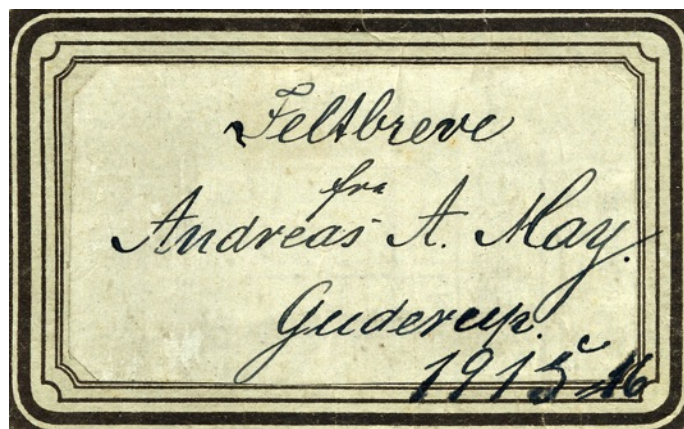 Feltbreve
fra
Andreas A. May.
Guderup.
1915-16